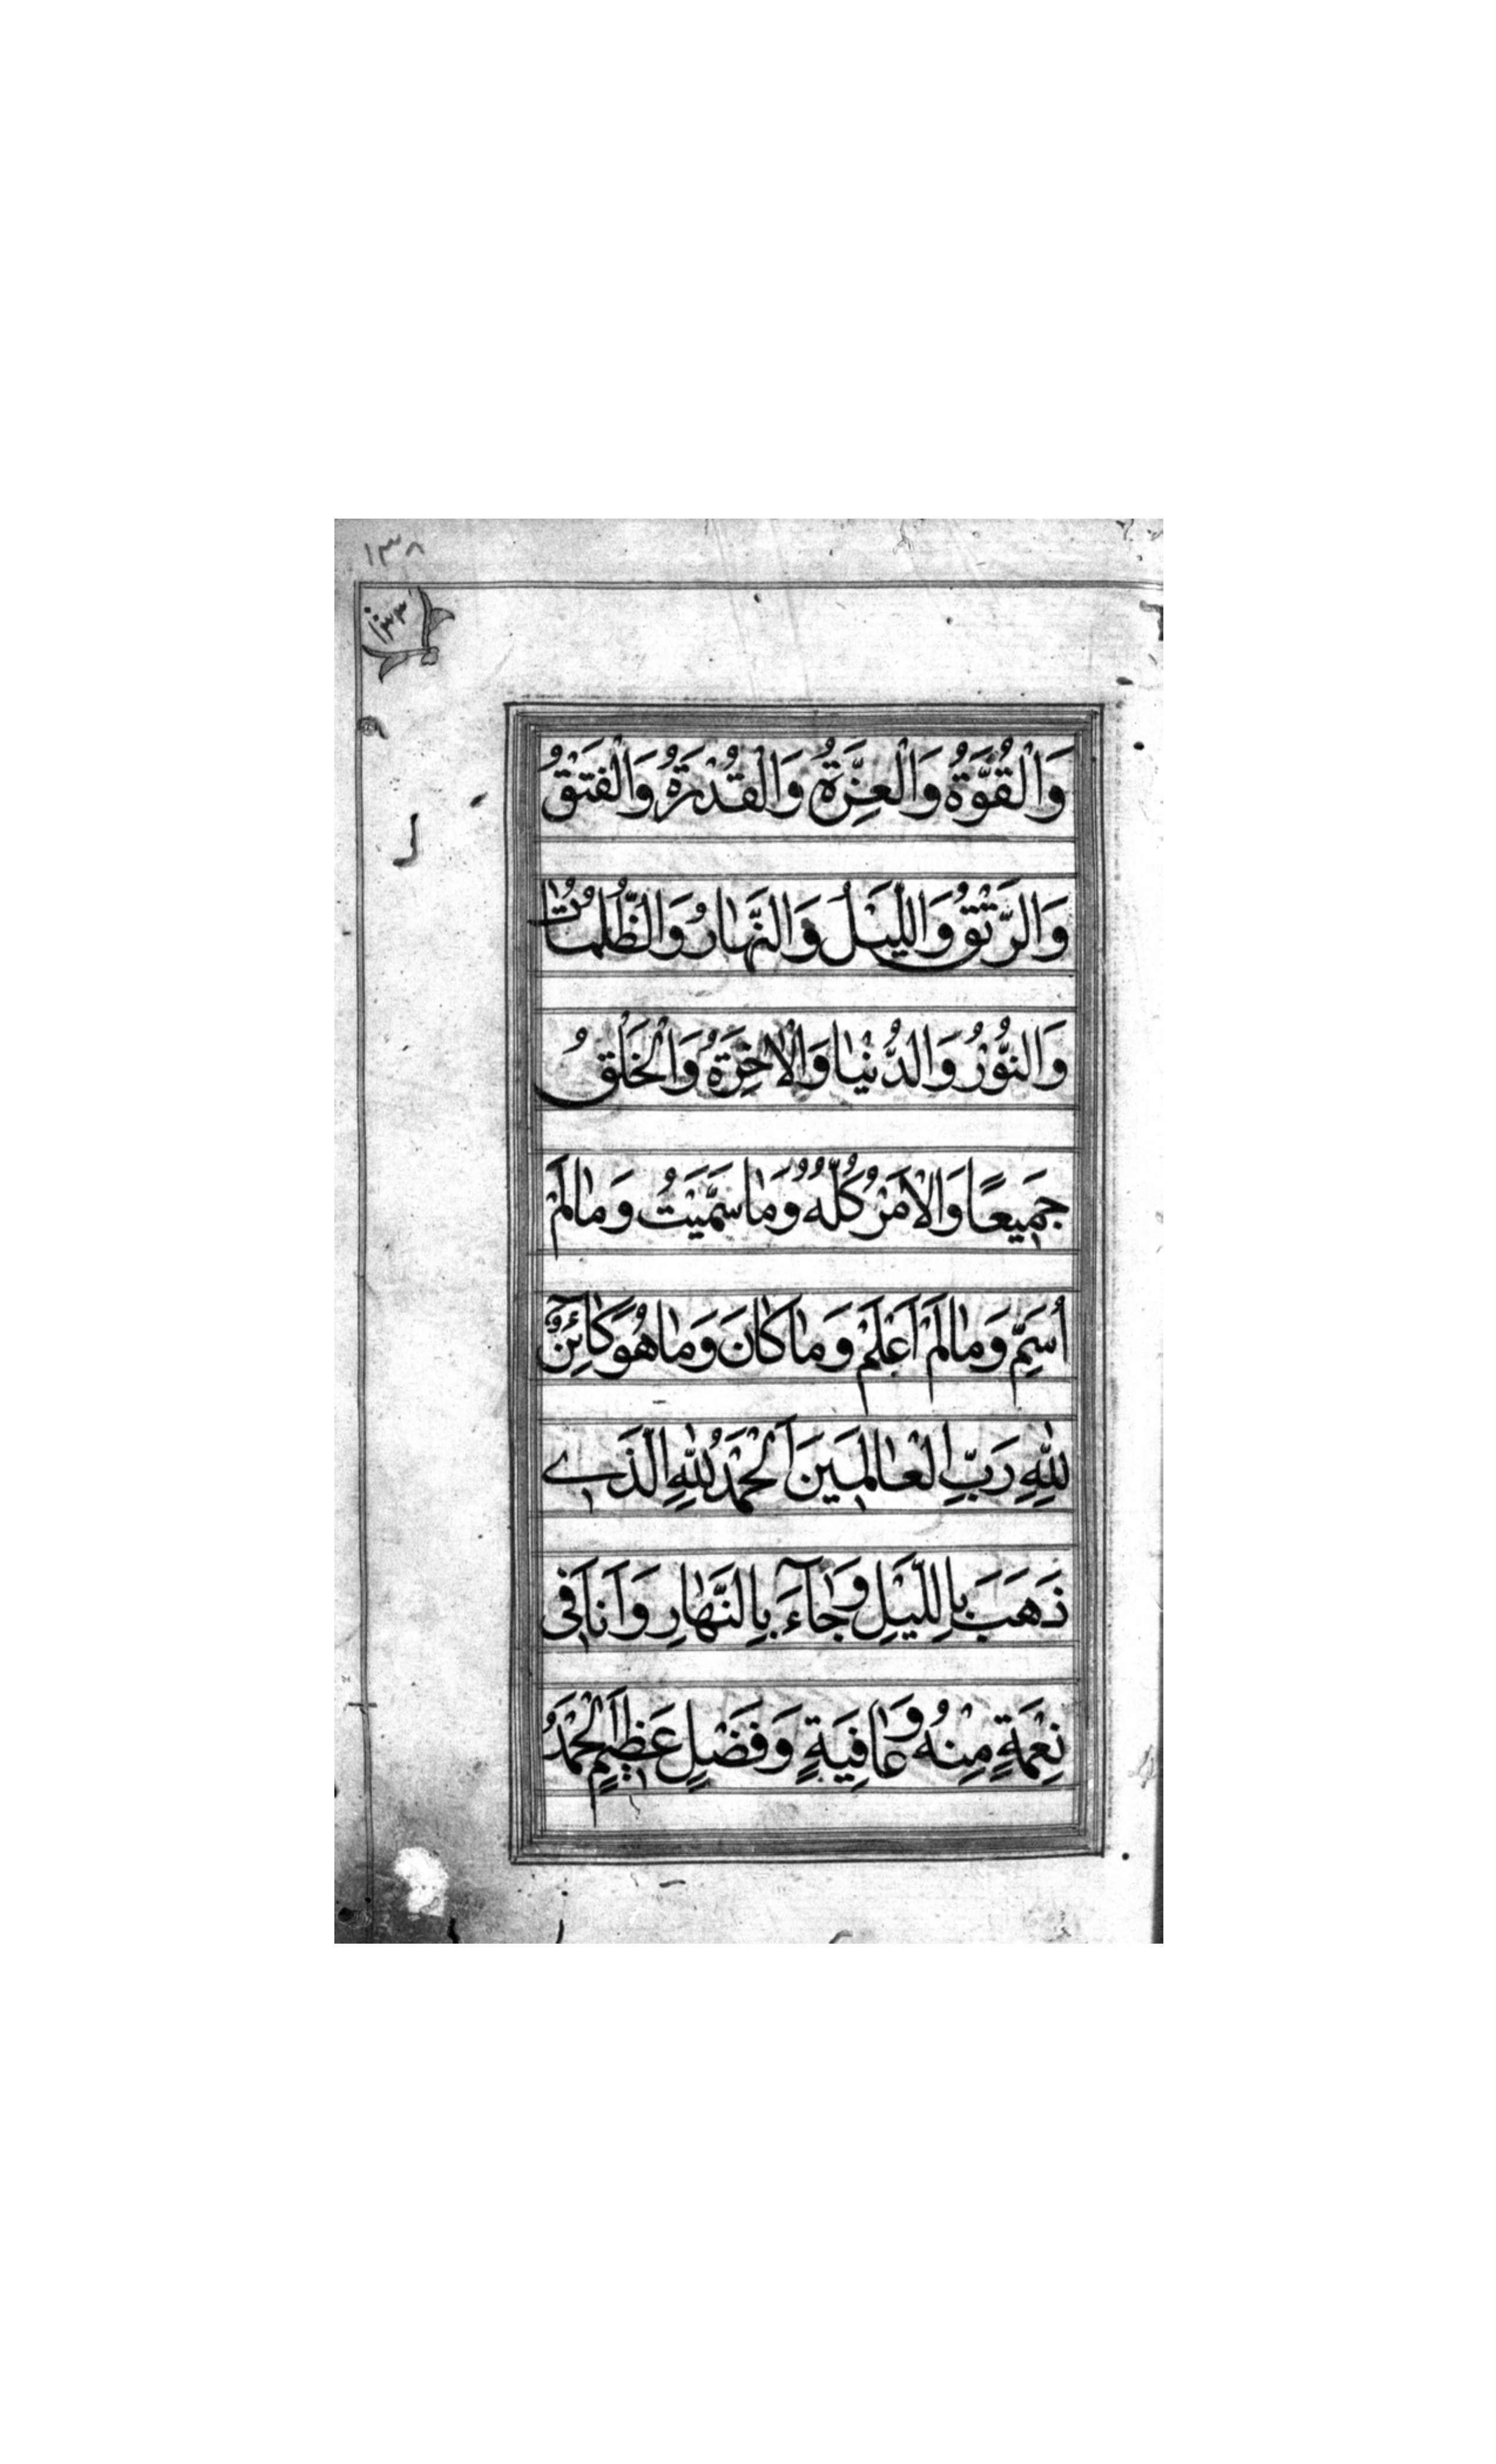 ١٣٨
١٣٣
وَالْقُوَّةُ وَالْعِزَّةُ وَالْقُدْرَةُ وَالْفَتْقُ
وَالرَّتْقُ وَاللَّيْلُ وَالنَّهَارُ وَالظُّلُمَاتُ
وَالنُّوْرُ وَالدُّنْيَا وَالْاٰخِرَةُ وَالْخَلْقُ
جَمِيعًا وَالْاَمْرُ كُلُّهُ وَمَا سَمَّيْتُ وَمَا لَمْ
اُسَمِّ وَمَا لَمْ اَعْلَمْ وَمَا كَانَ وَمَا هُوَ كَآئِنٌ
لِلّٰهِ رَبِّ الْعَالَمِينَ اَلْحَمْدُ لِلّٰهِ الَّذِے
ذَهَبَ بِاللَّيْلِ وَجَآءَ بِالنَّهَارِ وَاَنَا فِى
نِعْمَةٍ مِنْهُ وَعَافِيَةٍ وَفَضْلٍ عَظِيمٍ اَلْحَمْدُ